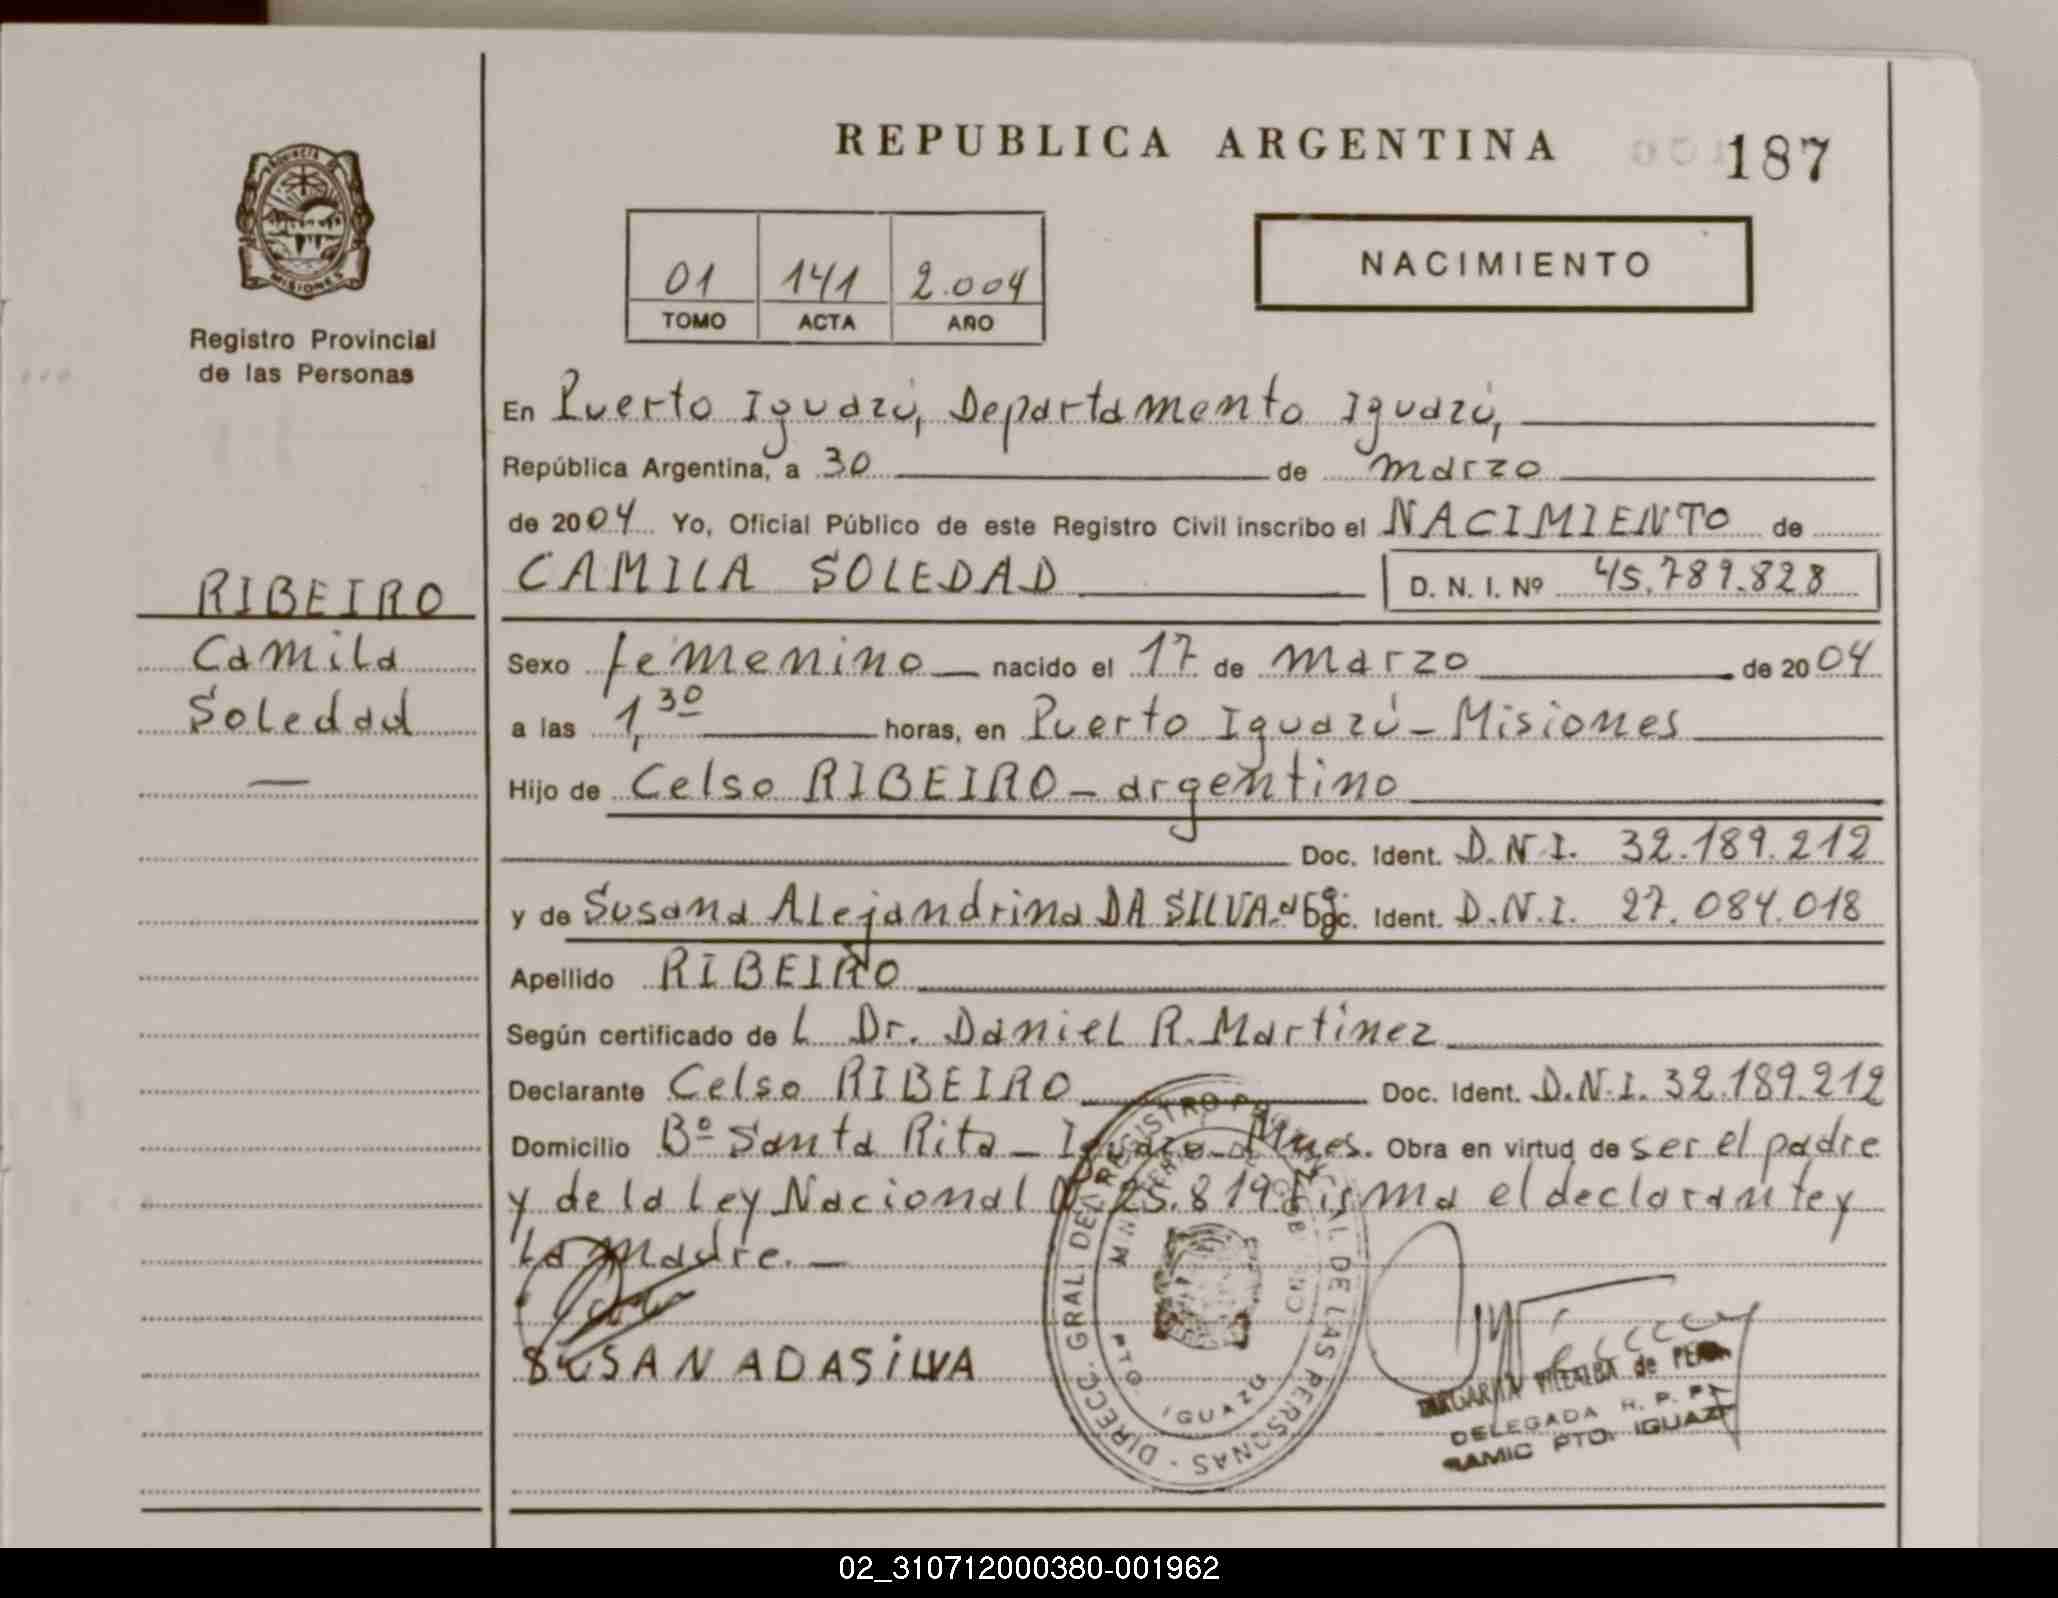 REPUBLICA ARGENTINA
187
PROVINCIA DE
MISIONES
Registro Provincial
de las Personas
01 141 2.004
TOMO ACTA AÑO
NACIMIENTO
En Puerto Iguazú, Departamento Iguazú,
República Argentina, a 30 de marzo
de 2004 Yo, Oficial Público de este Registro Civil inscribo el NACIMIENTO de
CAMILA SOLEDAD D. N. I. Nº 45.789.828
RIBEIRO
Camila
Soledad
—
Sexo femenino — nacido el 17 de marzo de 2004
a las 1,30 horas, en Puerto Iguazú - Misiones
Hijo de Celso RIBEIRO - argentino
Doc. Ident. D.N.I. 32.189.212
y de Susana Alejandrina DA SILVA Doc. Ident. D.N.I. 27.084.018
Apellido RIBEIRO
Según certificado de L Dr. Daniel R. Martinez
Declarante Celso RIBEIRO Doc. Ident. D.N.I. 32.189.212
Domicilio Bº Santa Rita - Iguazú - Mnes. Obra en virtud de ser el padre
y de la Ley Nacional Nº 25.819 firma el declarante y
la madre. —
SUSANADASiLVA
DIRECC. GRAL. DEL REGISTRO PROVINCIAL DE LAS PERSONAS -
PTO. IGUAZU
MARGARITA VILLALBA de
DELEGADA R. P. P.
SAMIC PTO. IGUAZU
02_310712000380-001962